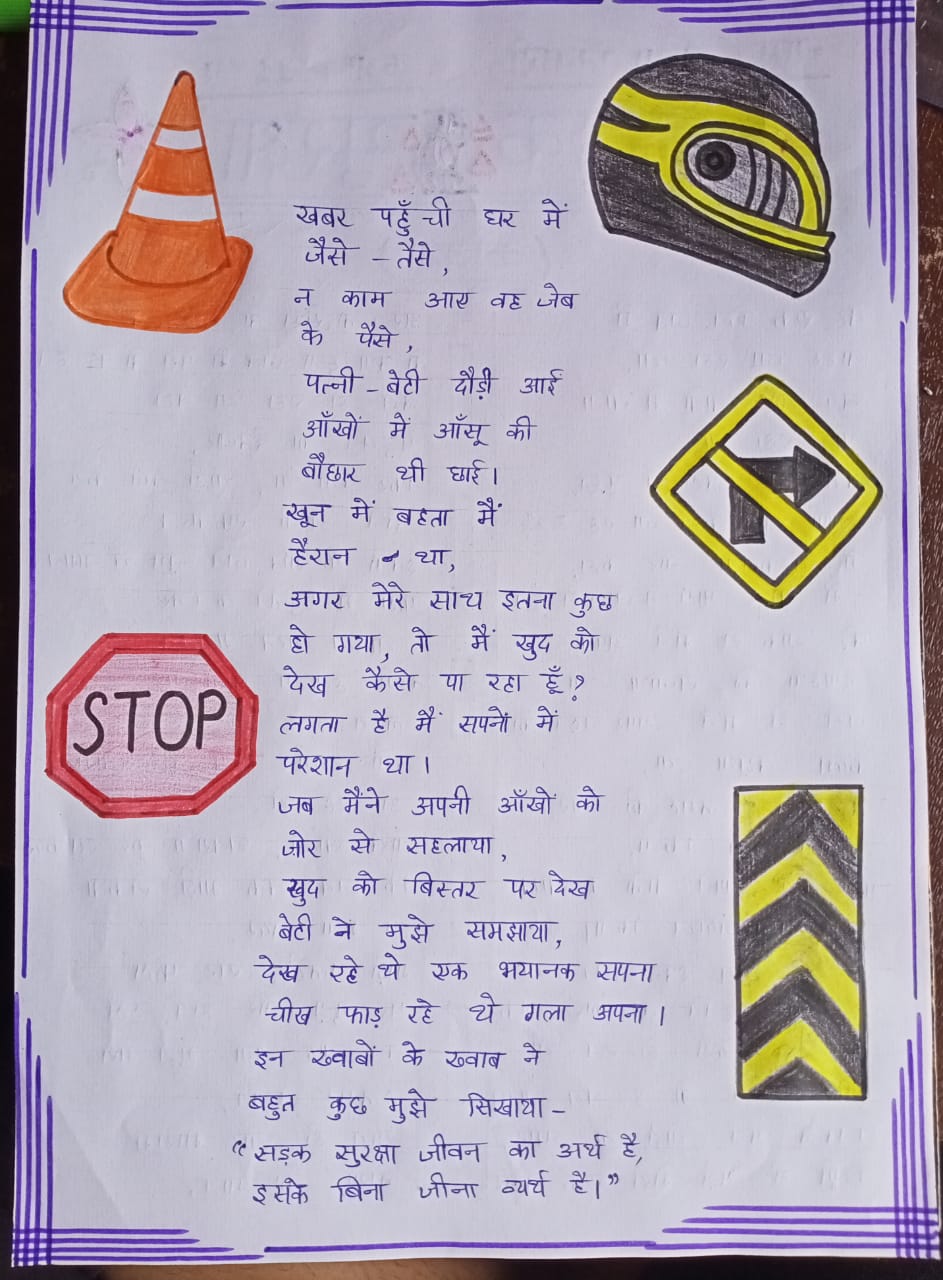 खबर पहुँची घर में
जैसे - तैसे,
न काम आए वह जेब
के पैसे,
पत्नी - बेटी दौड़ी आई
आँखों में आँसू की
बौछार थी छाई।
खून में बहता मैं
हैरान था,
अगर मेरे साथ इतना कुछ
हो गया, तो मैं खुद को
देख कैसे पा रहा हूँ?
लगता है मैं सपनों में
परेशान था।
STOP
जब मैंने अपनी आँखों को
जोर से सहलाया,
खुद को बिस्तर पर देख
बेटी ने मुझे समझाया,
देख रहे थे एक भयानक सपना
चीख फाड़ रहे थे गला अपना।
इन ख्वाबों के ख्वाब ने
बहुत कुछ मुझे सिखाया -
“सड़क सुरक्षा जीवन का अर्थ है,
इसके बिना जीना व्यर्थ है।”